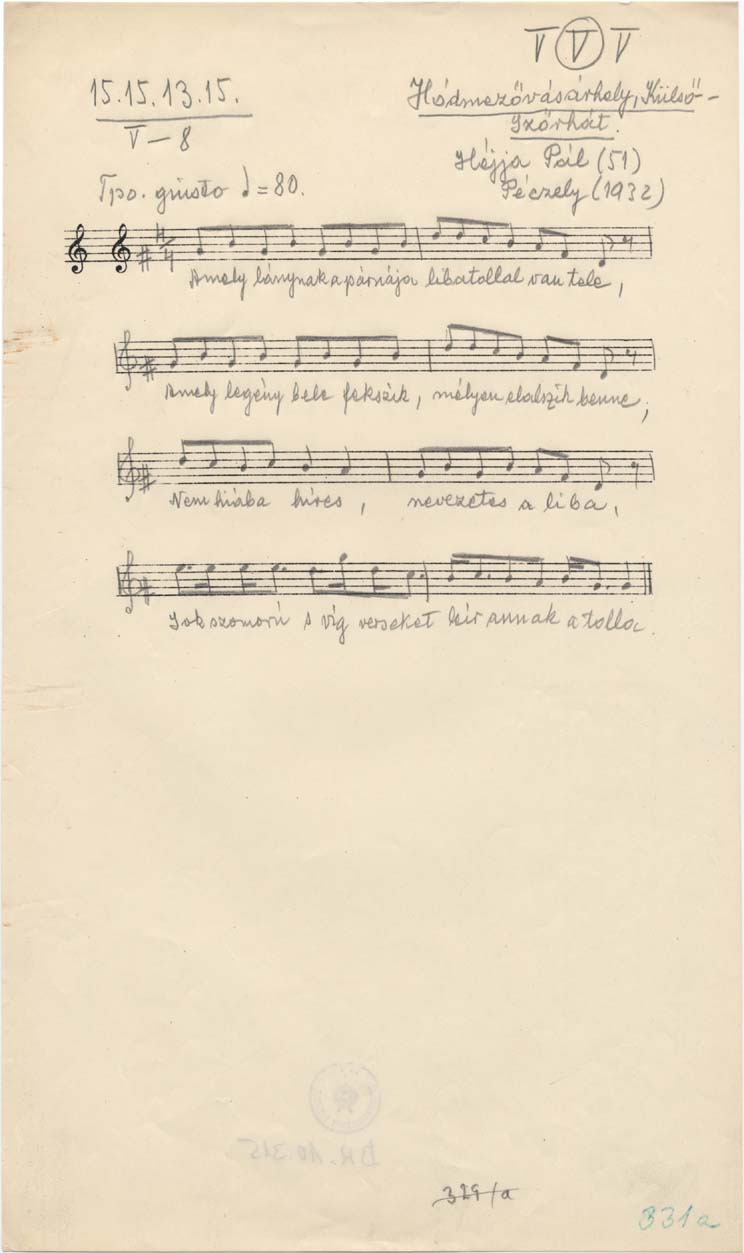 V V V
15.15.13.15.
V-8
Hódmezővásárhely, Külső-
Szőrhát.
Héjja Pál (51)
Péczely (1932)
Tpo. giusto = 80.
4/4
Amely lánynak a párnája libatollal van tele,
Amely legény bele fekszik, mélyen elalszik benne,
Nem hiába híres, nevezetes a liba,
Sok szomorú s víg verseket leir annak a tolla.
329/a
331a